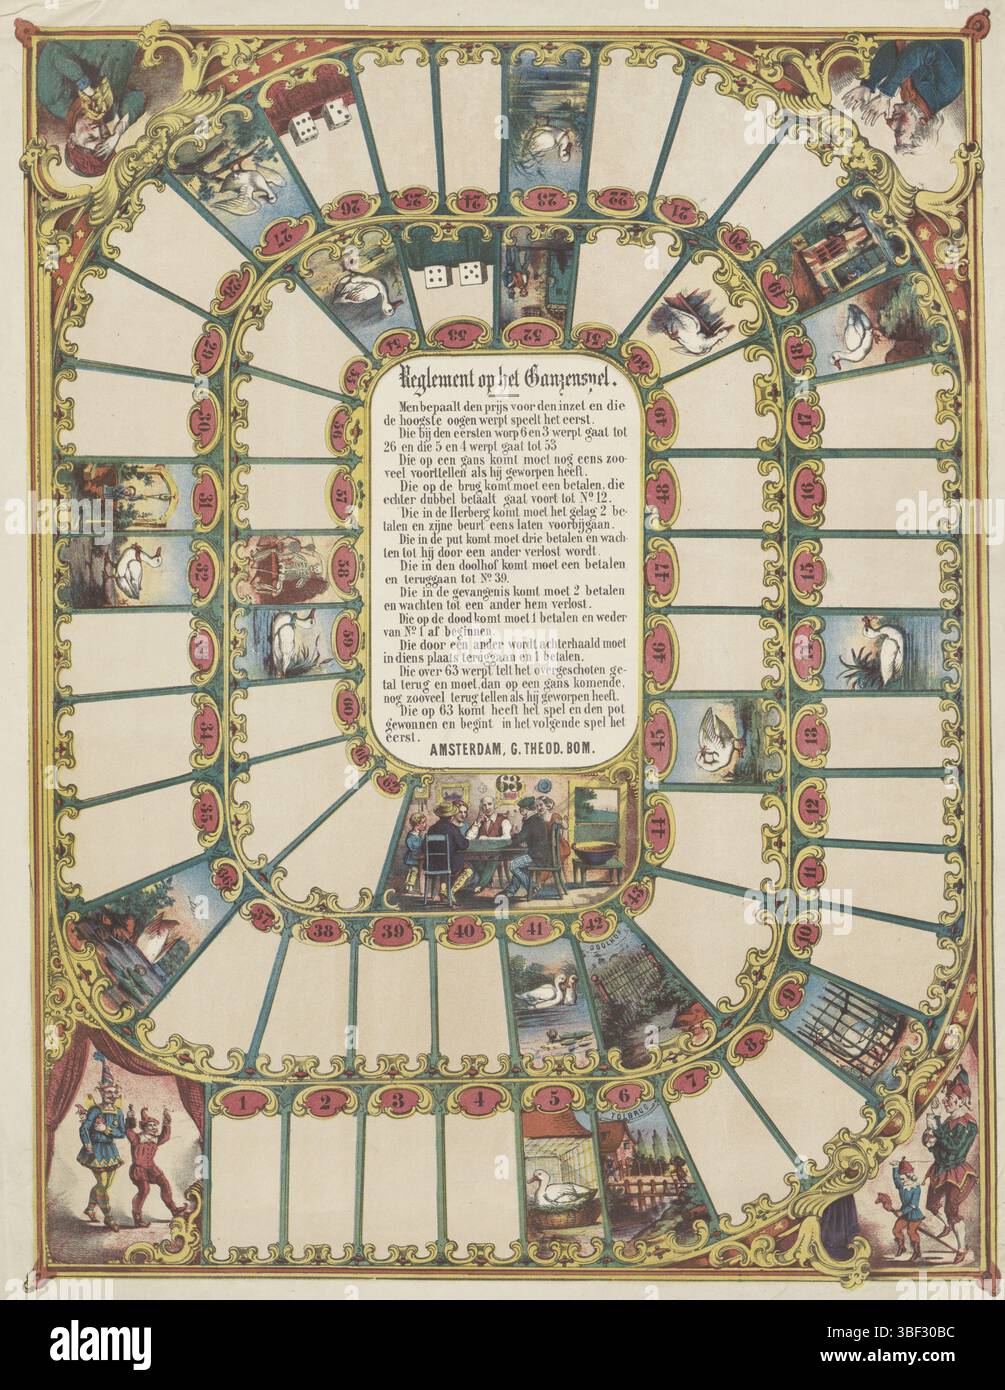 Reglement op het Ganzenspel.
Men bepaalt den prijs voor den inzet en die
de hoogste oogen werpt speelt het eerst.
Die bij den eersten worp 6 en 3 werpt gaat tot
26 en die 5 en 4 werpt gaat tot 53
Die op een gans komt moet nog eens zoo-
veel voorttellen als hij geworpen heeft.
Die op de brug komt moet een betalen, die
echter dubbel betaalt gaat voort tot Nº 12.
Die in de Herberg komt moet het gelag 2 be-
talen en zijne beurt eens laten voorbijgaan.
Die in de put komt moet drie betalen en wach-
ten tot hij door een ander verlost wordt.
Die in den doolhof komt moet een betalen
en teruggaan tot Nº 39.
Die in de gevangenis komt moet 2 betalen
en wachten tot een ander hem verlost.
Die op de dood komt moet 1 betalen en weder
van Nº 1 af beginnen.
Die door een ander wordt achterhaald moet
in diens plaats teruggaan en 1 betalen.
Die over 63 werpt telt het overgeschoten ge-
tal terug en moet, dan op een gans komende,
nog zooveel terug tellen als hij geworpen heeft.
Die op 63 komt heeft het spel en den pot
gewonnen en begint in het volgende spel het
eerst.
AMSTERDAM, G. THEOD. BOM.
1
2
3
4
5
6
TOLBRUG
7
8
9
10
11
12
13
14
15
16
17
18
19
20
21
22
23
24
25
26
27
28
29
30
31
32
33
34
35
36
37
38
39
40
41
42
DOOLHOF
43
44
45
46
47
48
49
50
51
52
53
54
55
56
57
58
59
60
61
62
63
alamy
Image ID: 2BF30BC
www.alamy.com